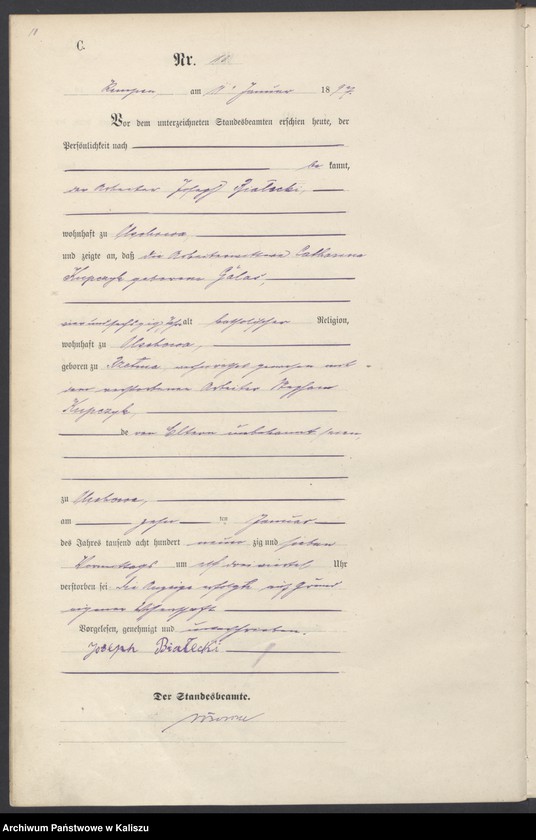 C.
Nr.
Kempen am 11. Januar 1897.
Vor dem unterzeichneten Standesbeamten erschien heute, der
Persönlichkeit nach
be kannt,
der Arbeiter Joseph Białecki,
wohnhaft zu
und zeigte an, daß die Catharina
Kupczyk geborene
alt katholischer Religion,
wohnhaft zu
geboren zu gewesen mit
dem verstorbenen Arbeiter Stephan
Kupczyk,
deren Eltern unbekannt seien,
zu
am zehn ten Januar
des Jahres tausend acht hundert neunzig und sieben
Vormittags um elf dreiviertel Uhr
verstorben sei die Anzeige erfolgte auf Grund
eigener Wissenschaft
Vorgelesen, genehmigt und unterschrieben.
Joseph Białecki
Der Standesbeamte.
Archiwum Państwowe w Kaliszu